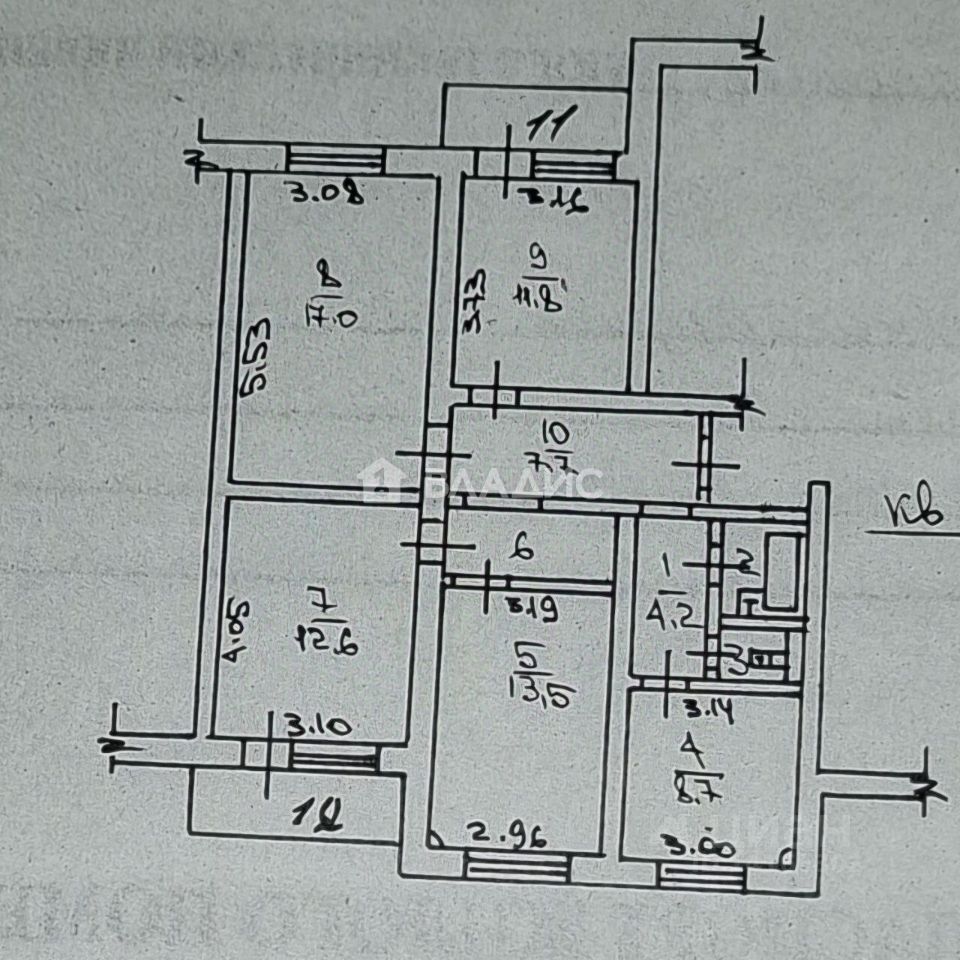 11
3.08
3.16
9
11.8
8
17.0
3.73
5.53
10
7.7
БЛАДИС
кв
6
1
4.2
2
3
7
12.6
4.05
3.19
5
13,5
3.14
4
8.7
3.10
12
2.96
3.00
ЦИАН